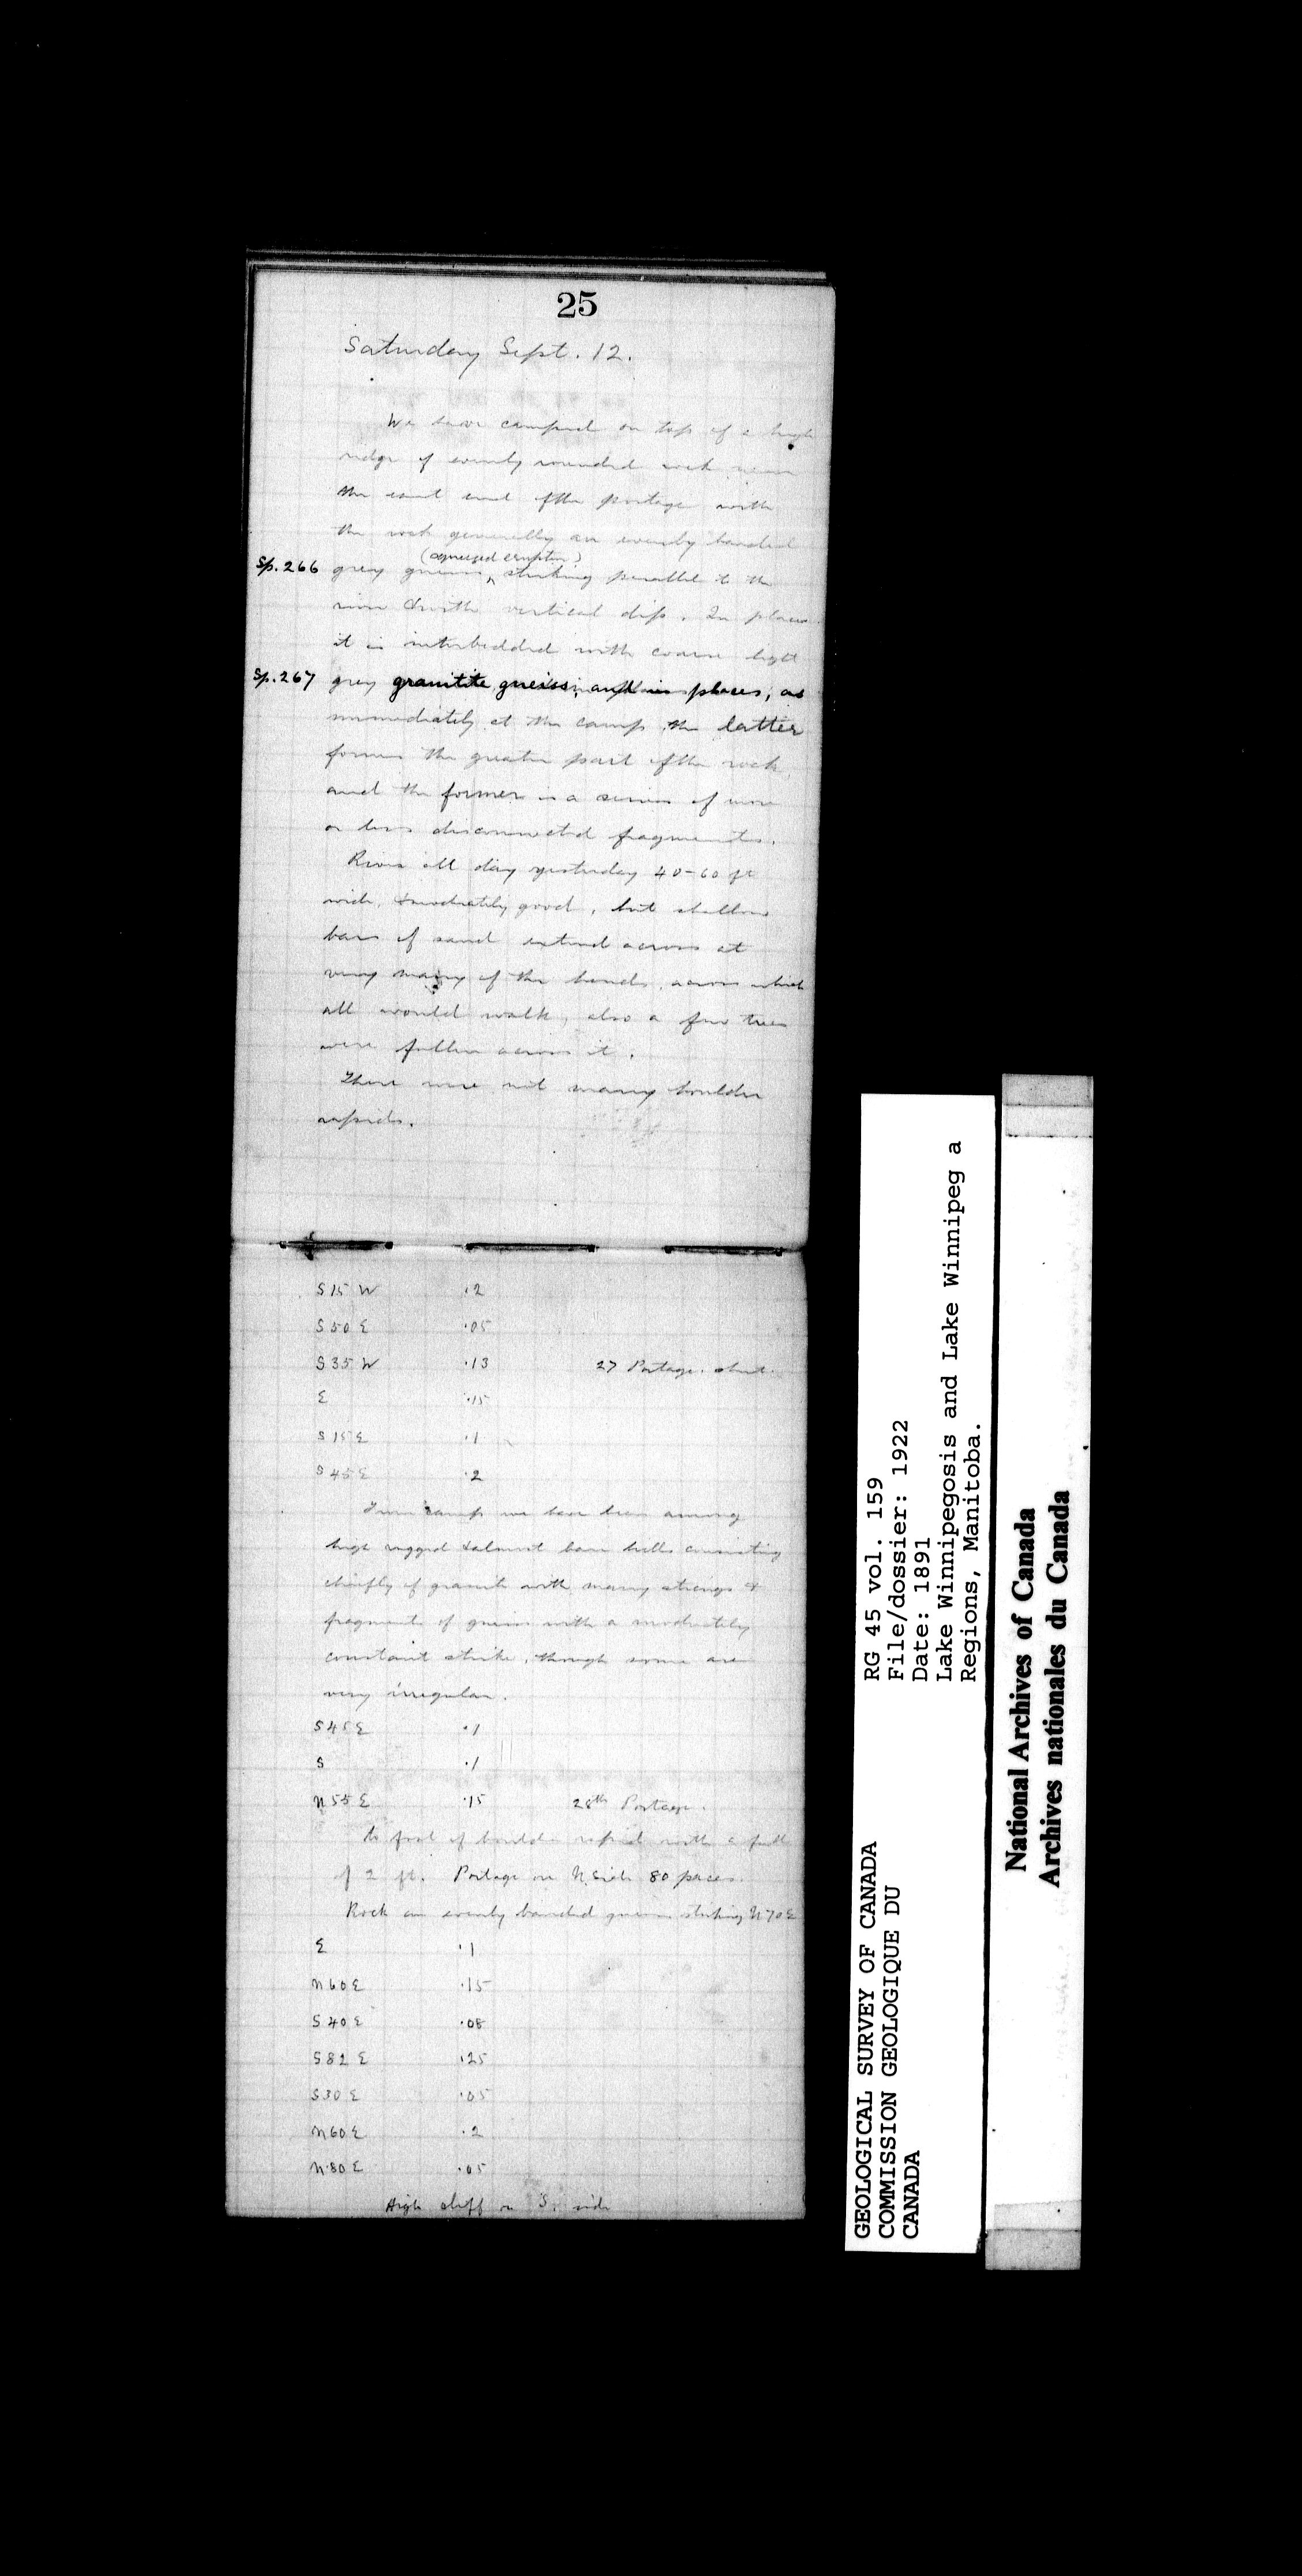 25
Saturday Sept. 12.
We have camped on top of a high
ridge of evenly rounded rock near
the east end of the portage with
the rock generally an evenly banded
(squeezed eruptive)
Sp. 266 grey gneiss, striking parallel to the
river & with vertical dip. In places
it is interbedded with coarse light
Sp. 267 grey granitite gneiss, and in places, as
immediately at the camp the latter
forms the greater part of the rock,
and the former is a series of more
or less disconnected fragments.
River all day yesterday 40-60 ft
wide, & moderately good, but shallow
bars of sand extend across at
very many of the bends, across which
all would walk, also a few trees
were fallen across it.
There were not many boulder
rapids.
S 15 W .2
S 50 E .05
S 35 W .13 27 Portage.
E .15
S 15 E .1
S 45 E .2
From camp we have been among
high rugged & almost bare hills consisting
chiefly of granite with many strings &
fragments of gneiss with a moderately
constant strike, though some are
very irregular.
S 45 E .1
S .1
N 55 E .15 28th Portage.
to foot of boulder rapid with a fall
of 2 ft. Portage on N. side 80 paces.
Rock an evenly banded gneiss striking N 70 E
E .1
N 60 E .15
S 40 E .08
S 82 E .25
S 30 E .05
N 60 E .2
N 80 E .05
High cliff on S. side
GEOLOGICAL SURVEY OF CANADA
COMMISSION GEOLOGIQUE DU
CANADA
RG 45 vol. 159
File/dossier: 1922
Date: 1891
Lake Winnipegosis and Lake Winnipeg a
Regions, Manitoba.
National Archives of Canada
Archives nationales du Canada